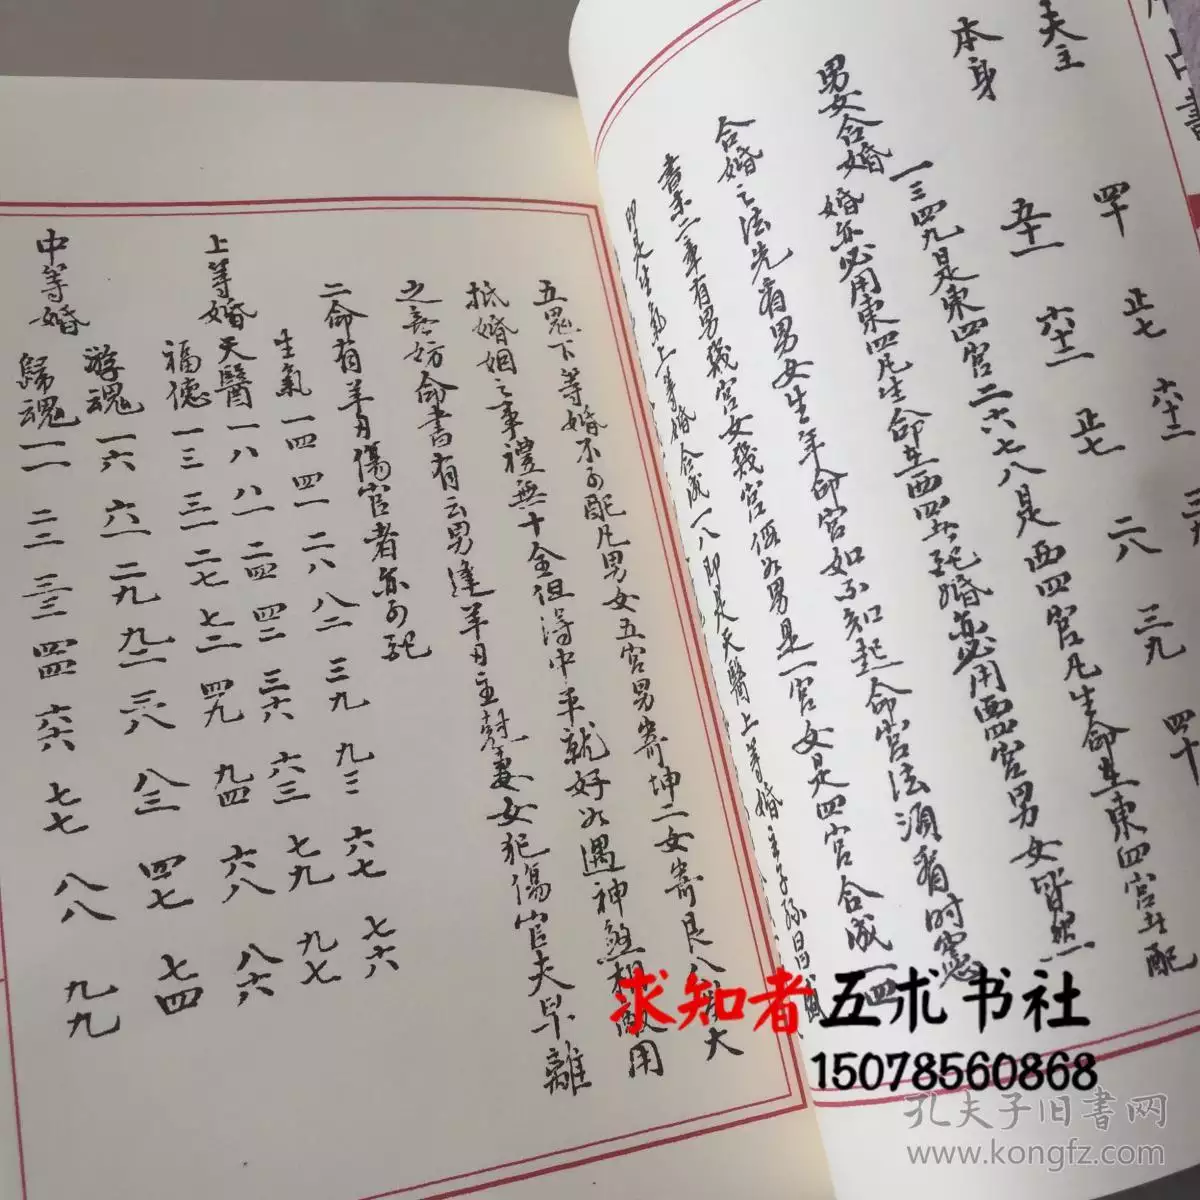 占書
夫主 四十 正七 六十二 三九
本身 五十一 六十二 正七 二八 三九 四十
男女合婚
一三四九是東四宮二六七八是西四宮凡生命在東四宮者配
婚亦必用東四凡生命在西四者配婚亦必用西四宮男女皆然
合婚之法先看男女生年命宮如不知起命宮法須看時憲
書末二章有男幾宮女幾宮假如男是一宮女是四宮合成一四
即是生氣上等婚合成一八即是天醫上等婚主子孫昌盛
五鬼下等婚不可配凡男女五宮男寄坤二女寄艮八大
抵婚姻之事禮無十全但得中平就好如遇神煞相敵用
之無妨命書有云男逢羊刃主尅妻女犯傷官夫早離
二命有羊刃傷官者亦可配
生氣 一四 四一 二八 八二 三九 九三 六七 七六
上等婚 天醫 一八 八一 二四 四二 三六 六三 七九 九七
福德 一三 三一 二七 七二 四九 九四 六八 八六
中等婚 游魂 一六 六一 二九 九二 三八 八三 四七 七四
歸魂 一一 二二 三三 四四 六六 七七 八八 九九
求知者 五术书社
15078560868
孔夫子旧書网
www.kongfz.com